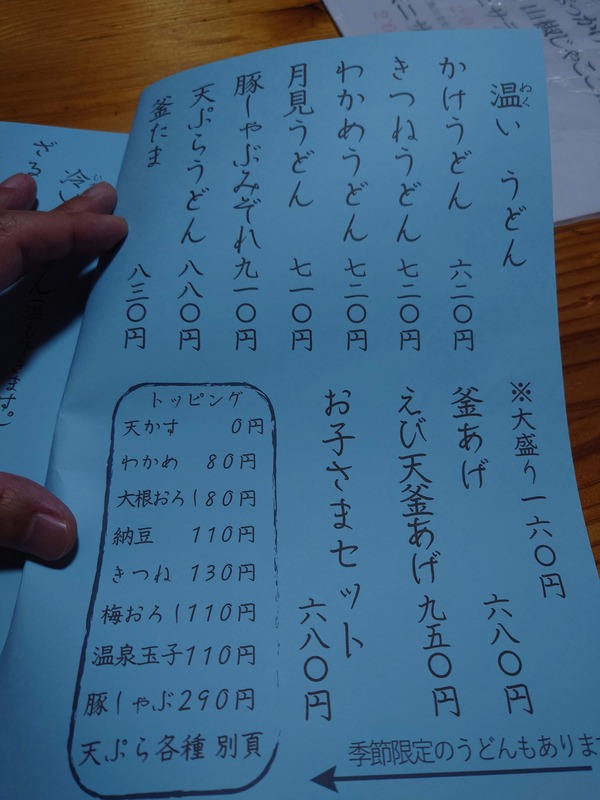 温い うどん
ぬく
かけうどん 六二〇円
きつねうどん 七二〇円
わかめうどん 七二〇円
月見うどん 七一〇円
豚しゃぶみぞれ 九一〇円
天ぷらうどん 八八〇円
釜たま 八三〇円
※大盛り一六〇円
釜あげ 六八〇円
えび天釜あげ 九五〇円
お子さまセット 六八〇円
トッピング
天かす 0円
わかめ 80円
大根おろし 80円
納豆 110円
きつね 130円
梅おろし 110円
温泉玉子 110円
豚しゃぶ 290円
天ぷら各種 別頁
季節限定のうどんもあります